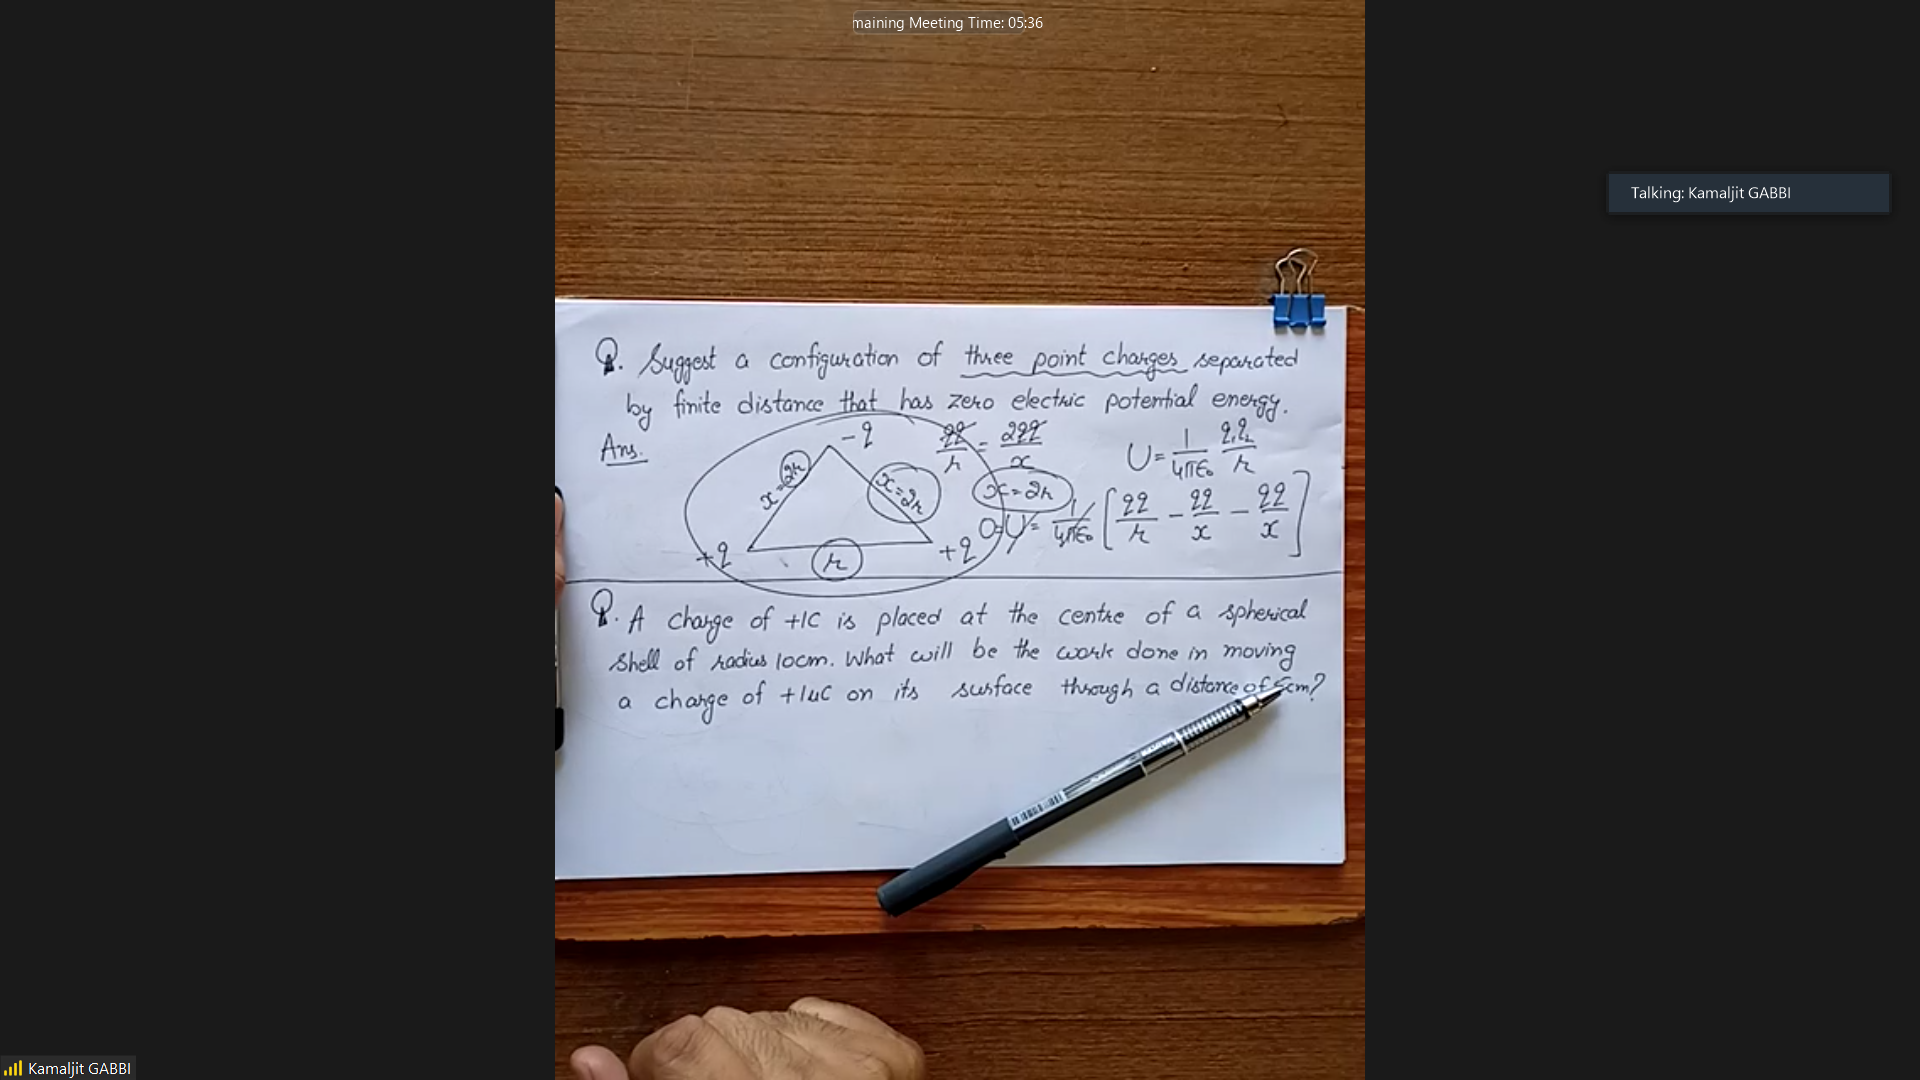 maining Meeting Time: 05:36
Talking: Kamaljit GABBI
Q. Suggest a configuration of three point charges separated
by finite distance that has zero electric potential energy.
Ans.
-q
x=2r
x=2r
+q
r
+q
qq/r = 2qq/x
x=2r
U = 1/4πε₀ q₁q₂/r
0=U= 1/4πε₀ [qq/r - qq/x - qq/x]
Q. A charge of +1C is placed at the centre of a spherical
shell of radius 10cm. What will be the work done in moving
a charge of +1μC on its surface through a distance of 5cm?
Kamaljit GABBI